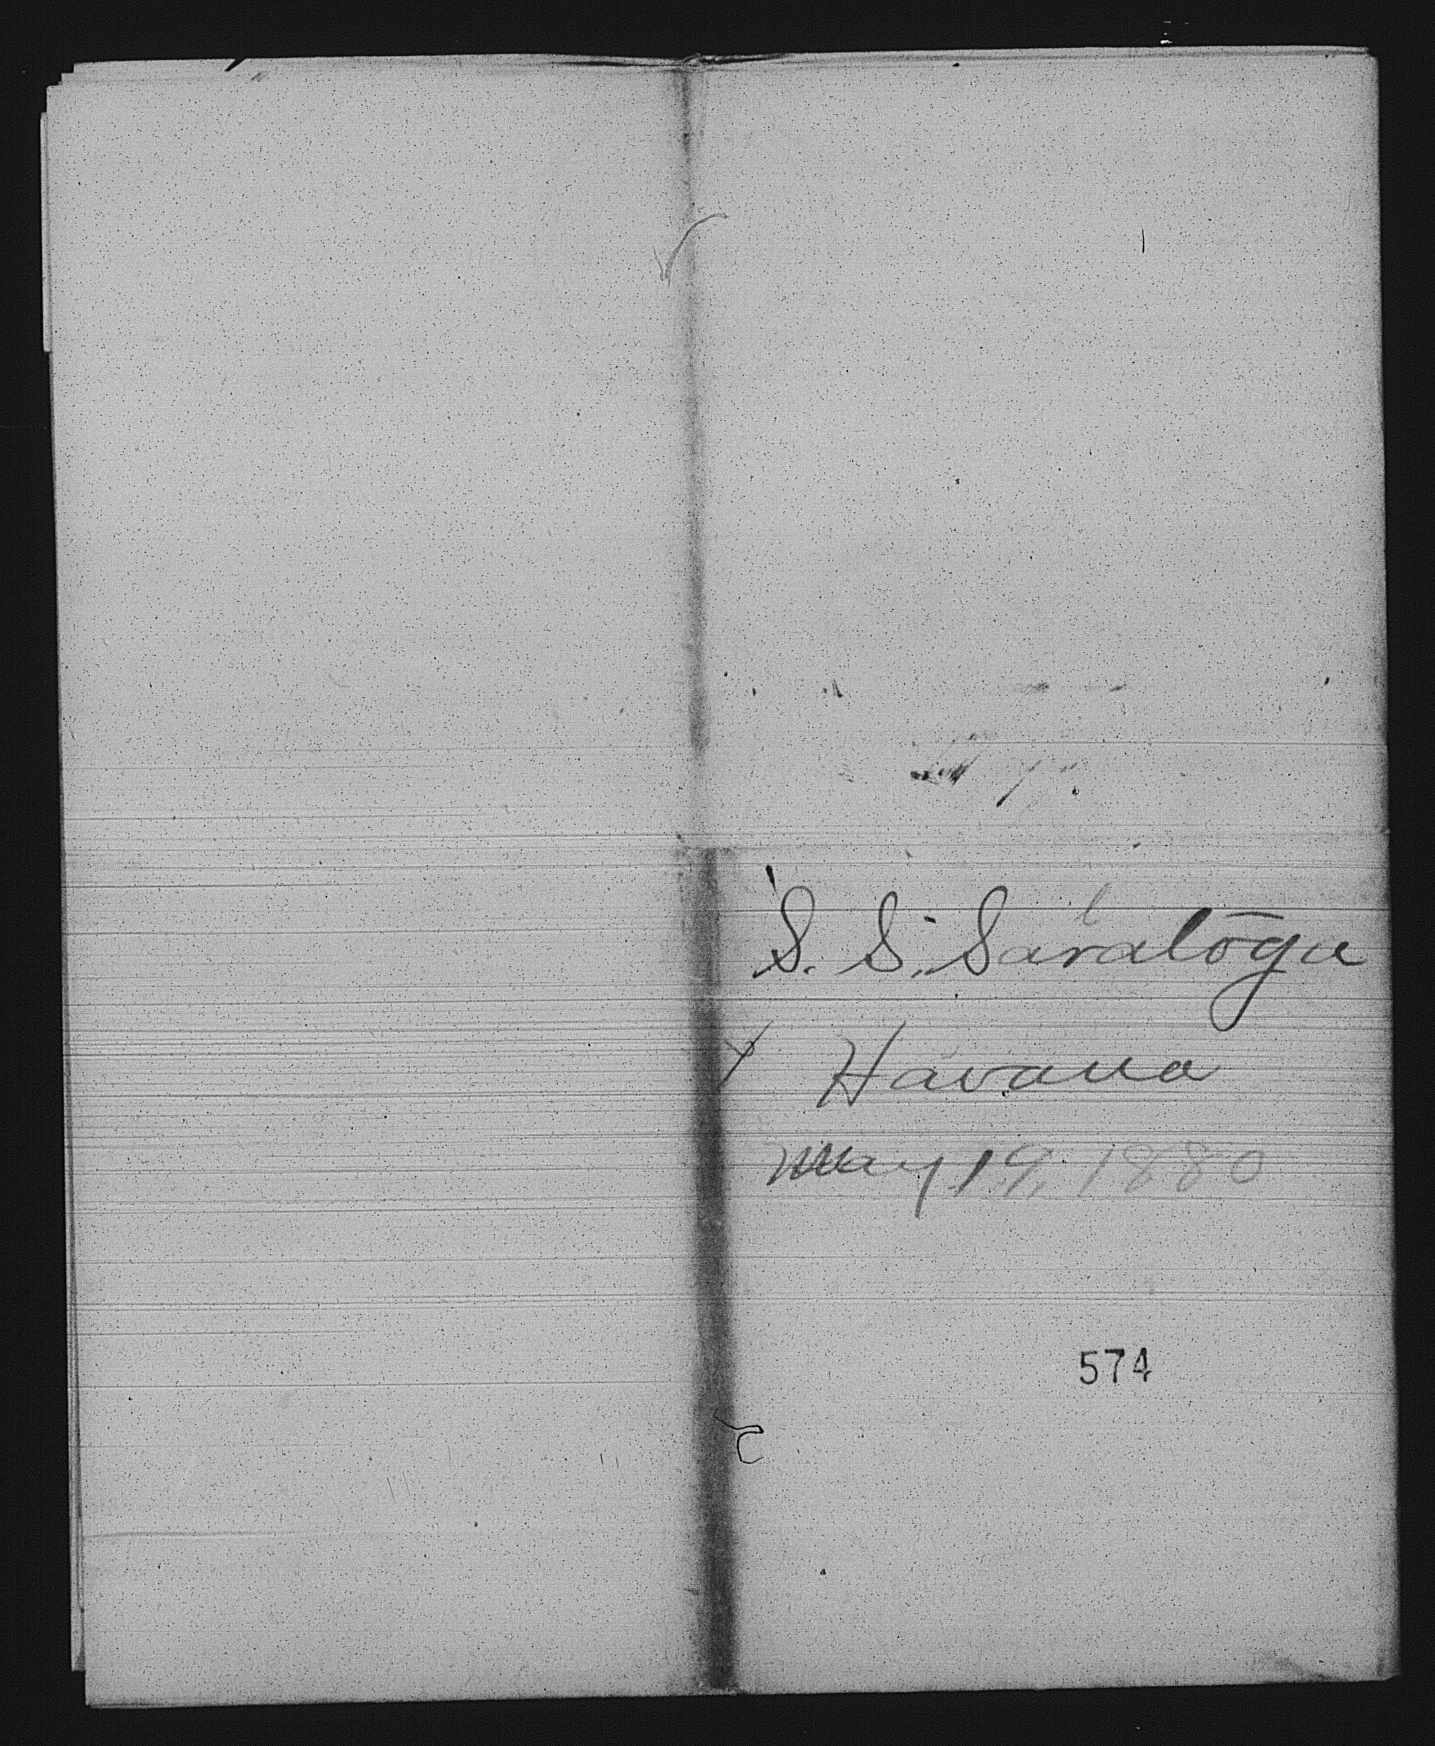 S. S. Saratoga
Havana
May 19, 1880
574